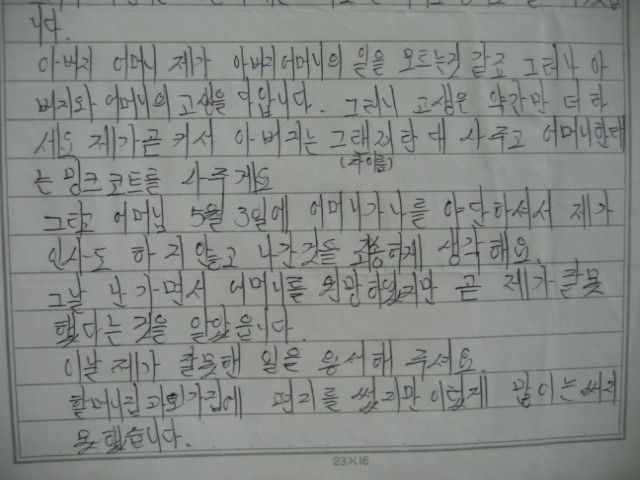 니다.
아버지 어머니 제가 아버지어머니의 일을 모르는것 같죠 그러나 아
버지와 어머니의 고생을 다압니다. 그러니 고생은 약간만 더 하
세요 제가곧 커서 아버지는 그랜져한대 사주고 어머니한테
(차이름)
는 밍크코트를 사주게요
그리고 어머님 5월 3일에 어머니가 나를 야단하셔서 제가
인사도 하지않고 나간것을 죄송하게 생각해요.
그날 난가면서 어머니를 원망하였지만 곧 제가잘못
했다는 것을 알았읍니다.
이날 제가 잘못한 일은 용서해 주서요.
할머니집과외가집에 편지를 썼지만 이렇게 많이는써지
못했습니다.
23X16